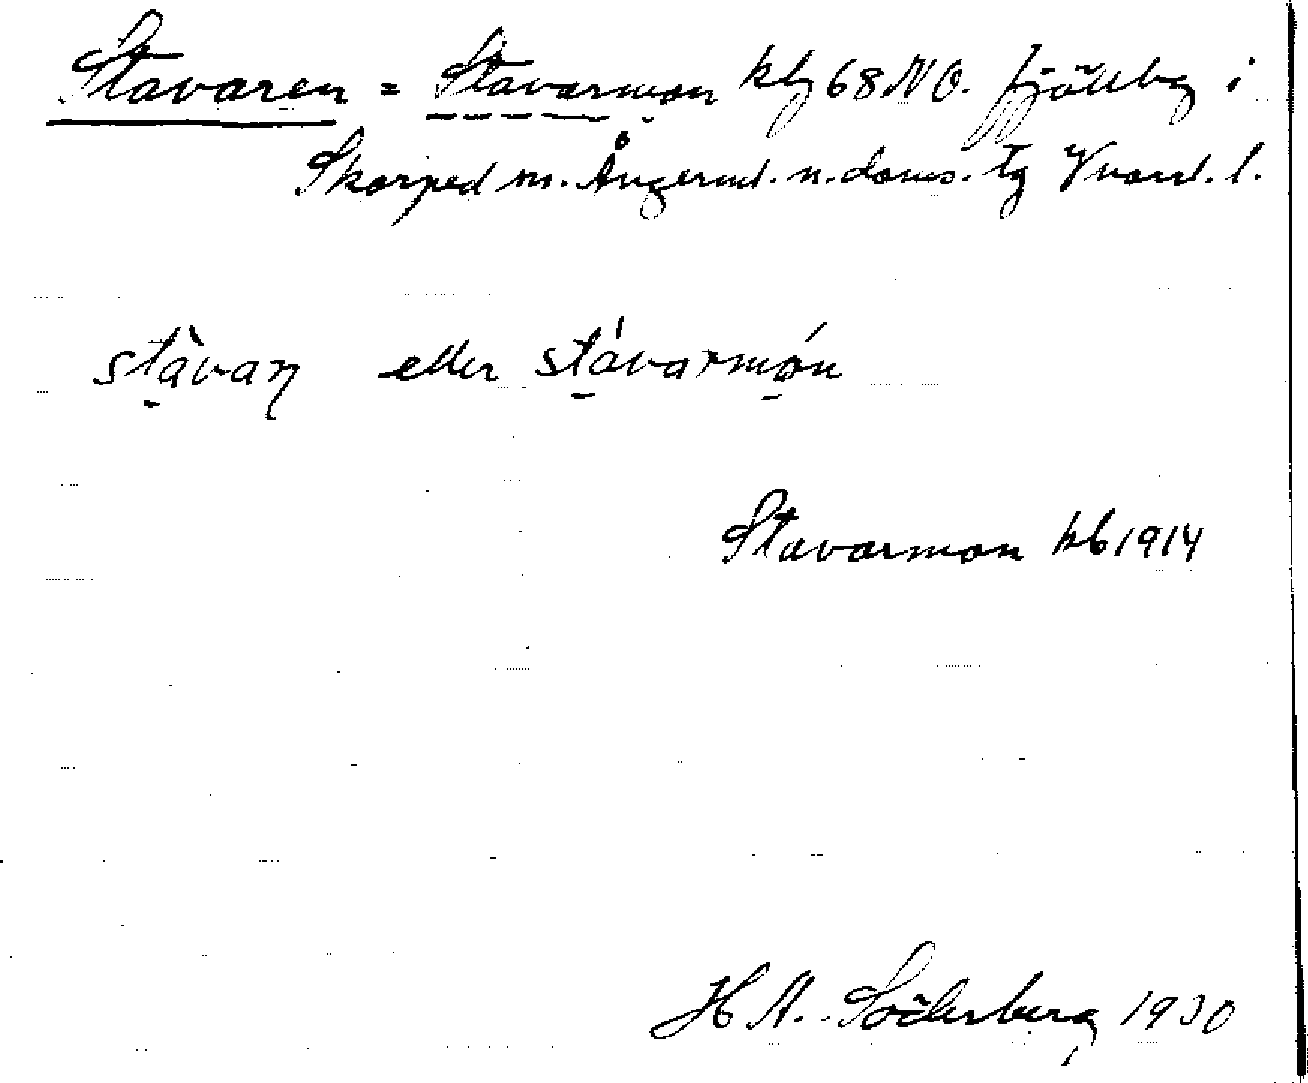 Stavaren = Stavarmon kbl 68 NO. Fjällbg i
Skorped sn. Ångerml. n. doms. tg Vnorrl. l.
stàvaṇ eller stávarmón
Stavarmon kb 1914
H A. Söderberg 1930